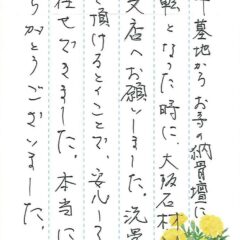 墓地からお寺の納骨壇に
転となった時に、大阪石材
支店へお願いしました。洗骨
て頂けるということで、安心して
任せできました。本当に
りがとうございました。